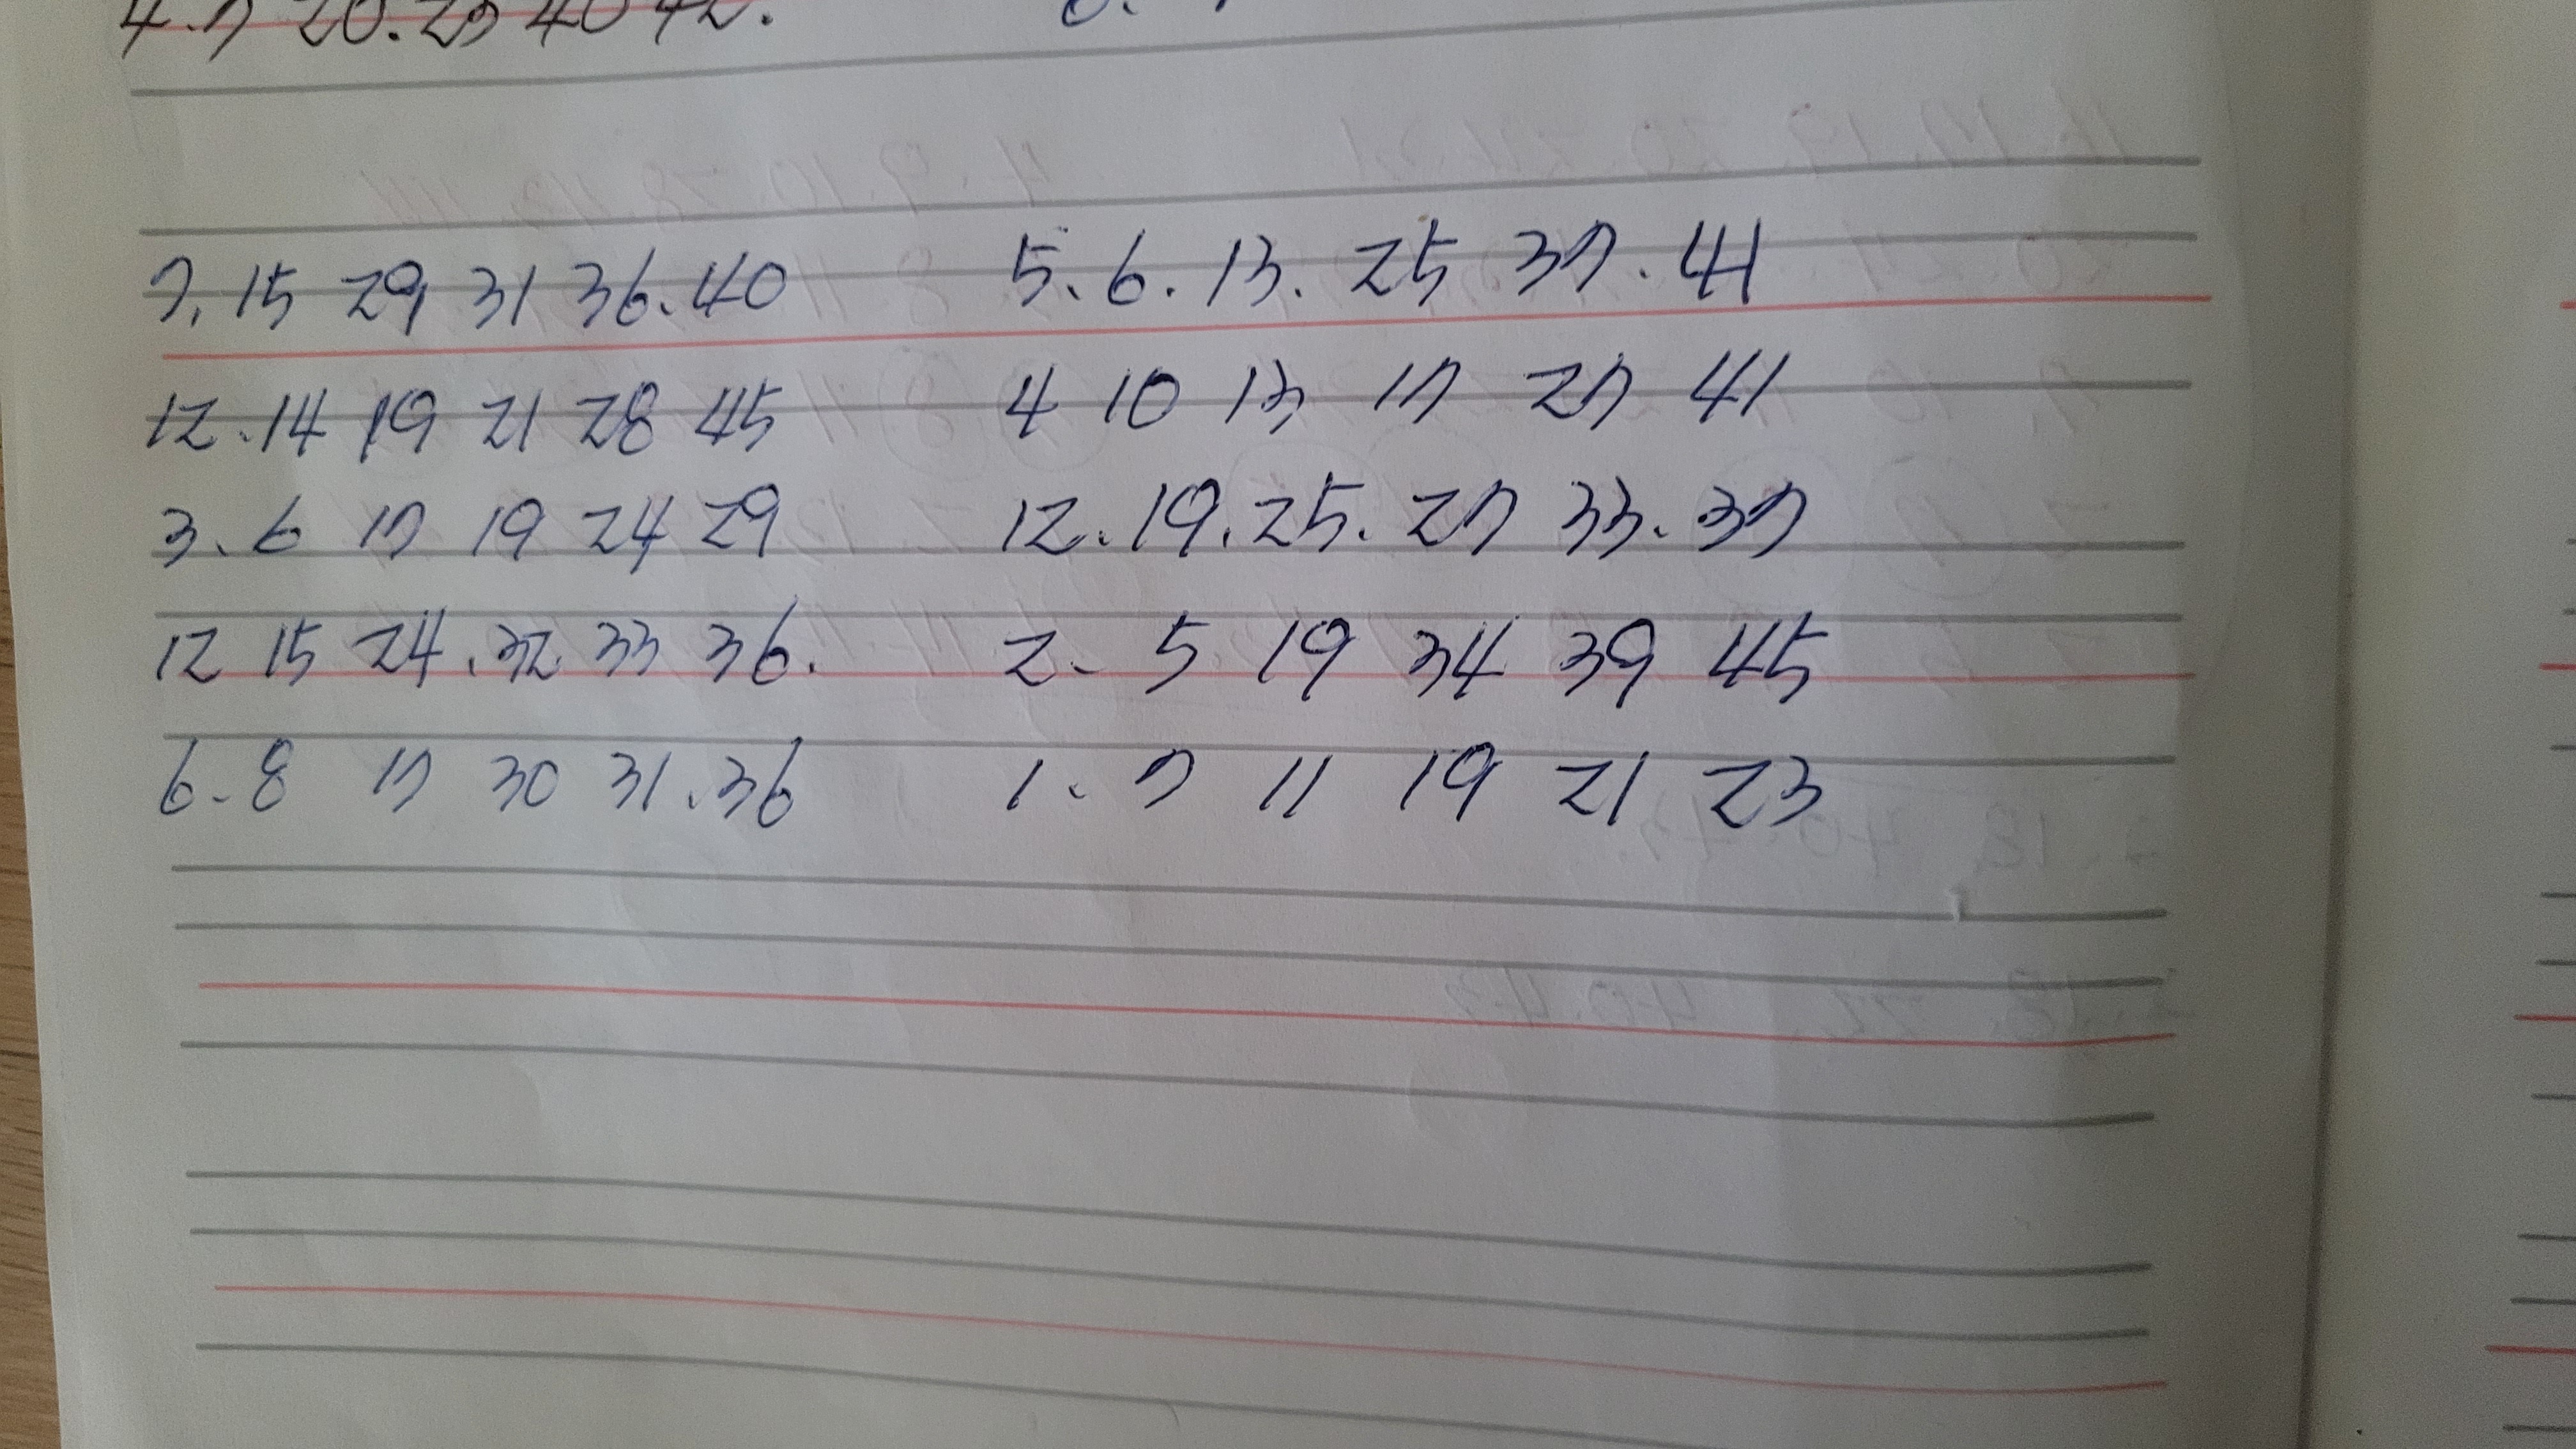 4.7 20.23 40 42.
7. 15 29 31 36.40 5.6.13.25 37.41
12.14 19 21 28 45 4 10 13 17 27 41
3.6 17 19 24 29 12.19.25.27 33.37
12 15 24.32 33 36. 2. 5 19 34 39 45
6.8 17 30 31.36 1.7 11 19 21 23